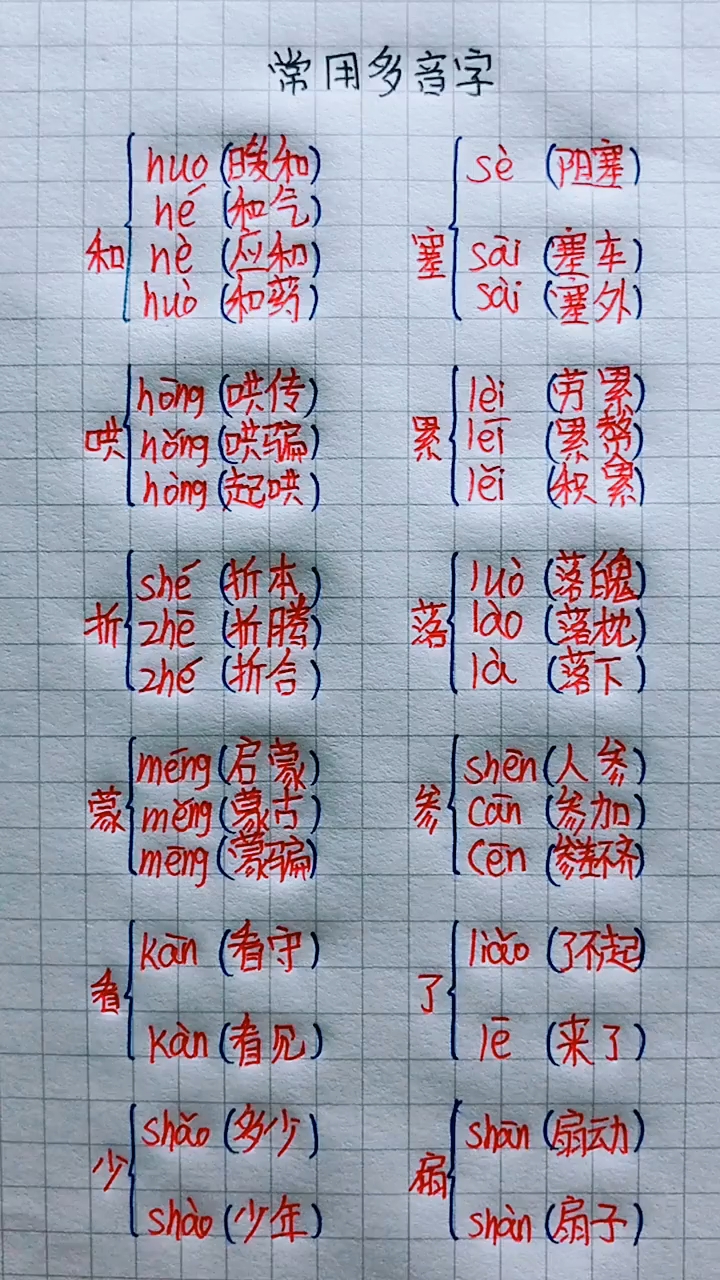 常用多音字
和
huo (暖和)
hé (和气)
hè (应和)
huò (和药)
塞
sè (阻塞)
sāi (塞车)
sài (塞外)
哄
hōng (哄传)
hǒng (哄骗)
hòng (起哄)
累
lèi (劳累)
léi (累赘)
lěi (积累)
折
shé (折本)
zhē (折腾)
zhé (折合)
落
luò (落魄)
lào (落枕)
là (落下)
蒙
méng (启蒙)
měng (蒙古)
mēng (蒙骗)
参
shēn (人参)
cān (参加)
cēn (参差不齐)
看
kān (看守)
kàn (看见)
了
liǎo (了不起)
lē (来了)
少
shǎo (多少)
shào (少年)
扇
shān (扇动)
shàn (扇子)